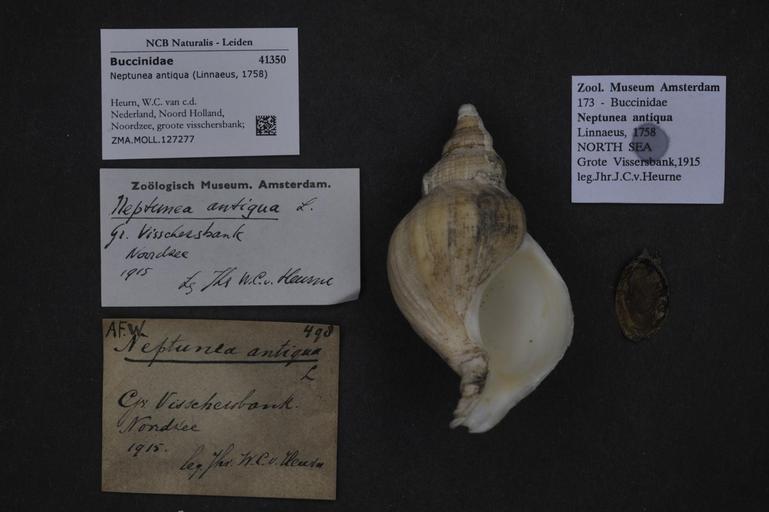 NCB Naturalis - Leiden
Buccinidae 41350
Neptunea antiqua (Linnaeus, 1758)
Heurn, W.C. van c.d.
Nederland, Noord Holland,
Noordzee, groote visschersbank;
ZMA.MOLL.127277
Zoölogisch Museum. Amsterdam.
Neptunea antiqua L.
Gr. Visschersbank
Noordzee
1915
Lg Jhr W.C.v. Heurne
AF.W. 498
Neptunea antiqua
L
Gr. Visschersbank.
Noordzee
1915.
leg. Jhr. W.C.v. Heurn
Zool. Museum Amsterdam
173 - Buccinidae
Neptunea antiqua
Linnaeus, 1758
NORTH SEA
Grote Vissersbank,1915
leg.Jhr.J.C.v.Heurne